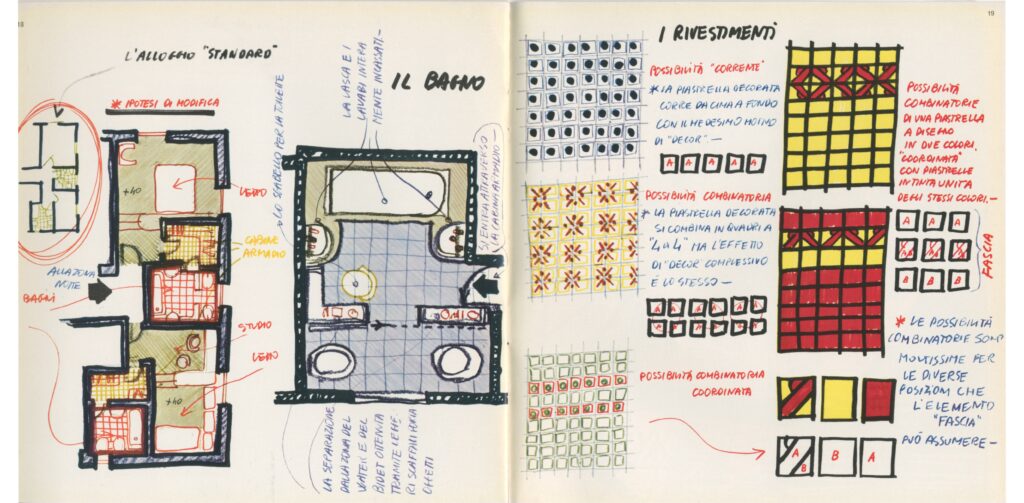 18
L'ALLOGGIO "STANDARD"
* IPOTESI DI MODIFICA
+40
LETTO
CABINE
ARMADIO
ALLA ZONA
NOTTE
BAGNI
STUDIO
LETTO
+40
LO SGABELLO PER LA TOILETTE
LA VASCA E I
LAVABI INTERA
MENTE INCASSATI.-
IL BAGNO
SI ENTRA ATTRAVERSO
LA CABINA ARMADIO-
LA SEPARAZIONE
DALLA ZONA DEL
WATER E DEL
BIDET OTTENUTA
TRAMITE LEGGE
RI SCAFFALI PORTA
OGGETTI
19
I RIVESTIMENTI
POSSIBILITÀ "CORRENTE"
* LA PIASTRELLA DECORATA
CORRE DA CIMA A FONDO
CON IL MEDESIMO MOTIVO
DI "DECOR".-
A A A A A
POSSIBILITÀ COMBINATORIA
* LA PIASTRELLA DECORATA
SI COMBINA IN QUADRI A
"4 a 4" MA L'EFFETTO
DI "DECOR" COMPLESSIVO
È LO STESSO-
A A A A A A
A A A A A A
POSSIBILITÀ COMBINATORIA
COORDINATA
POSSIBILITÀ
COMBINATORIE
DI UNA PIASTRELLA
A DISEGNO
IN DUE COLORI.
"COORDINATA"
CON PIASTRELLE
IN TINTA UNITA
DEGLI STESSI COLORI.-
A A A
B B B
FASCIA
* LE POSSIBILITÀ
COMBINATORIE SONO
MOLTISSIME PER
LE DIVERSE
POSIZIONI CHE
L'ELEMENTO
"FASCIA"
PUÒ ASSUMERE-
A B B A